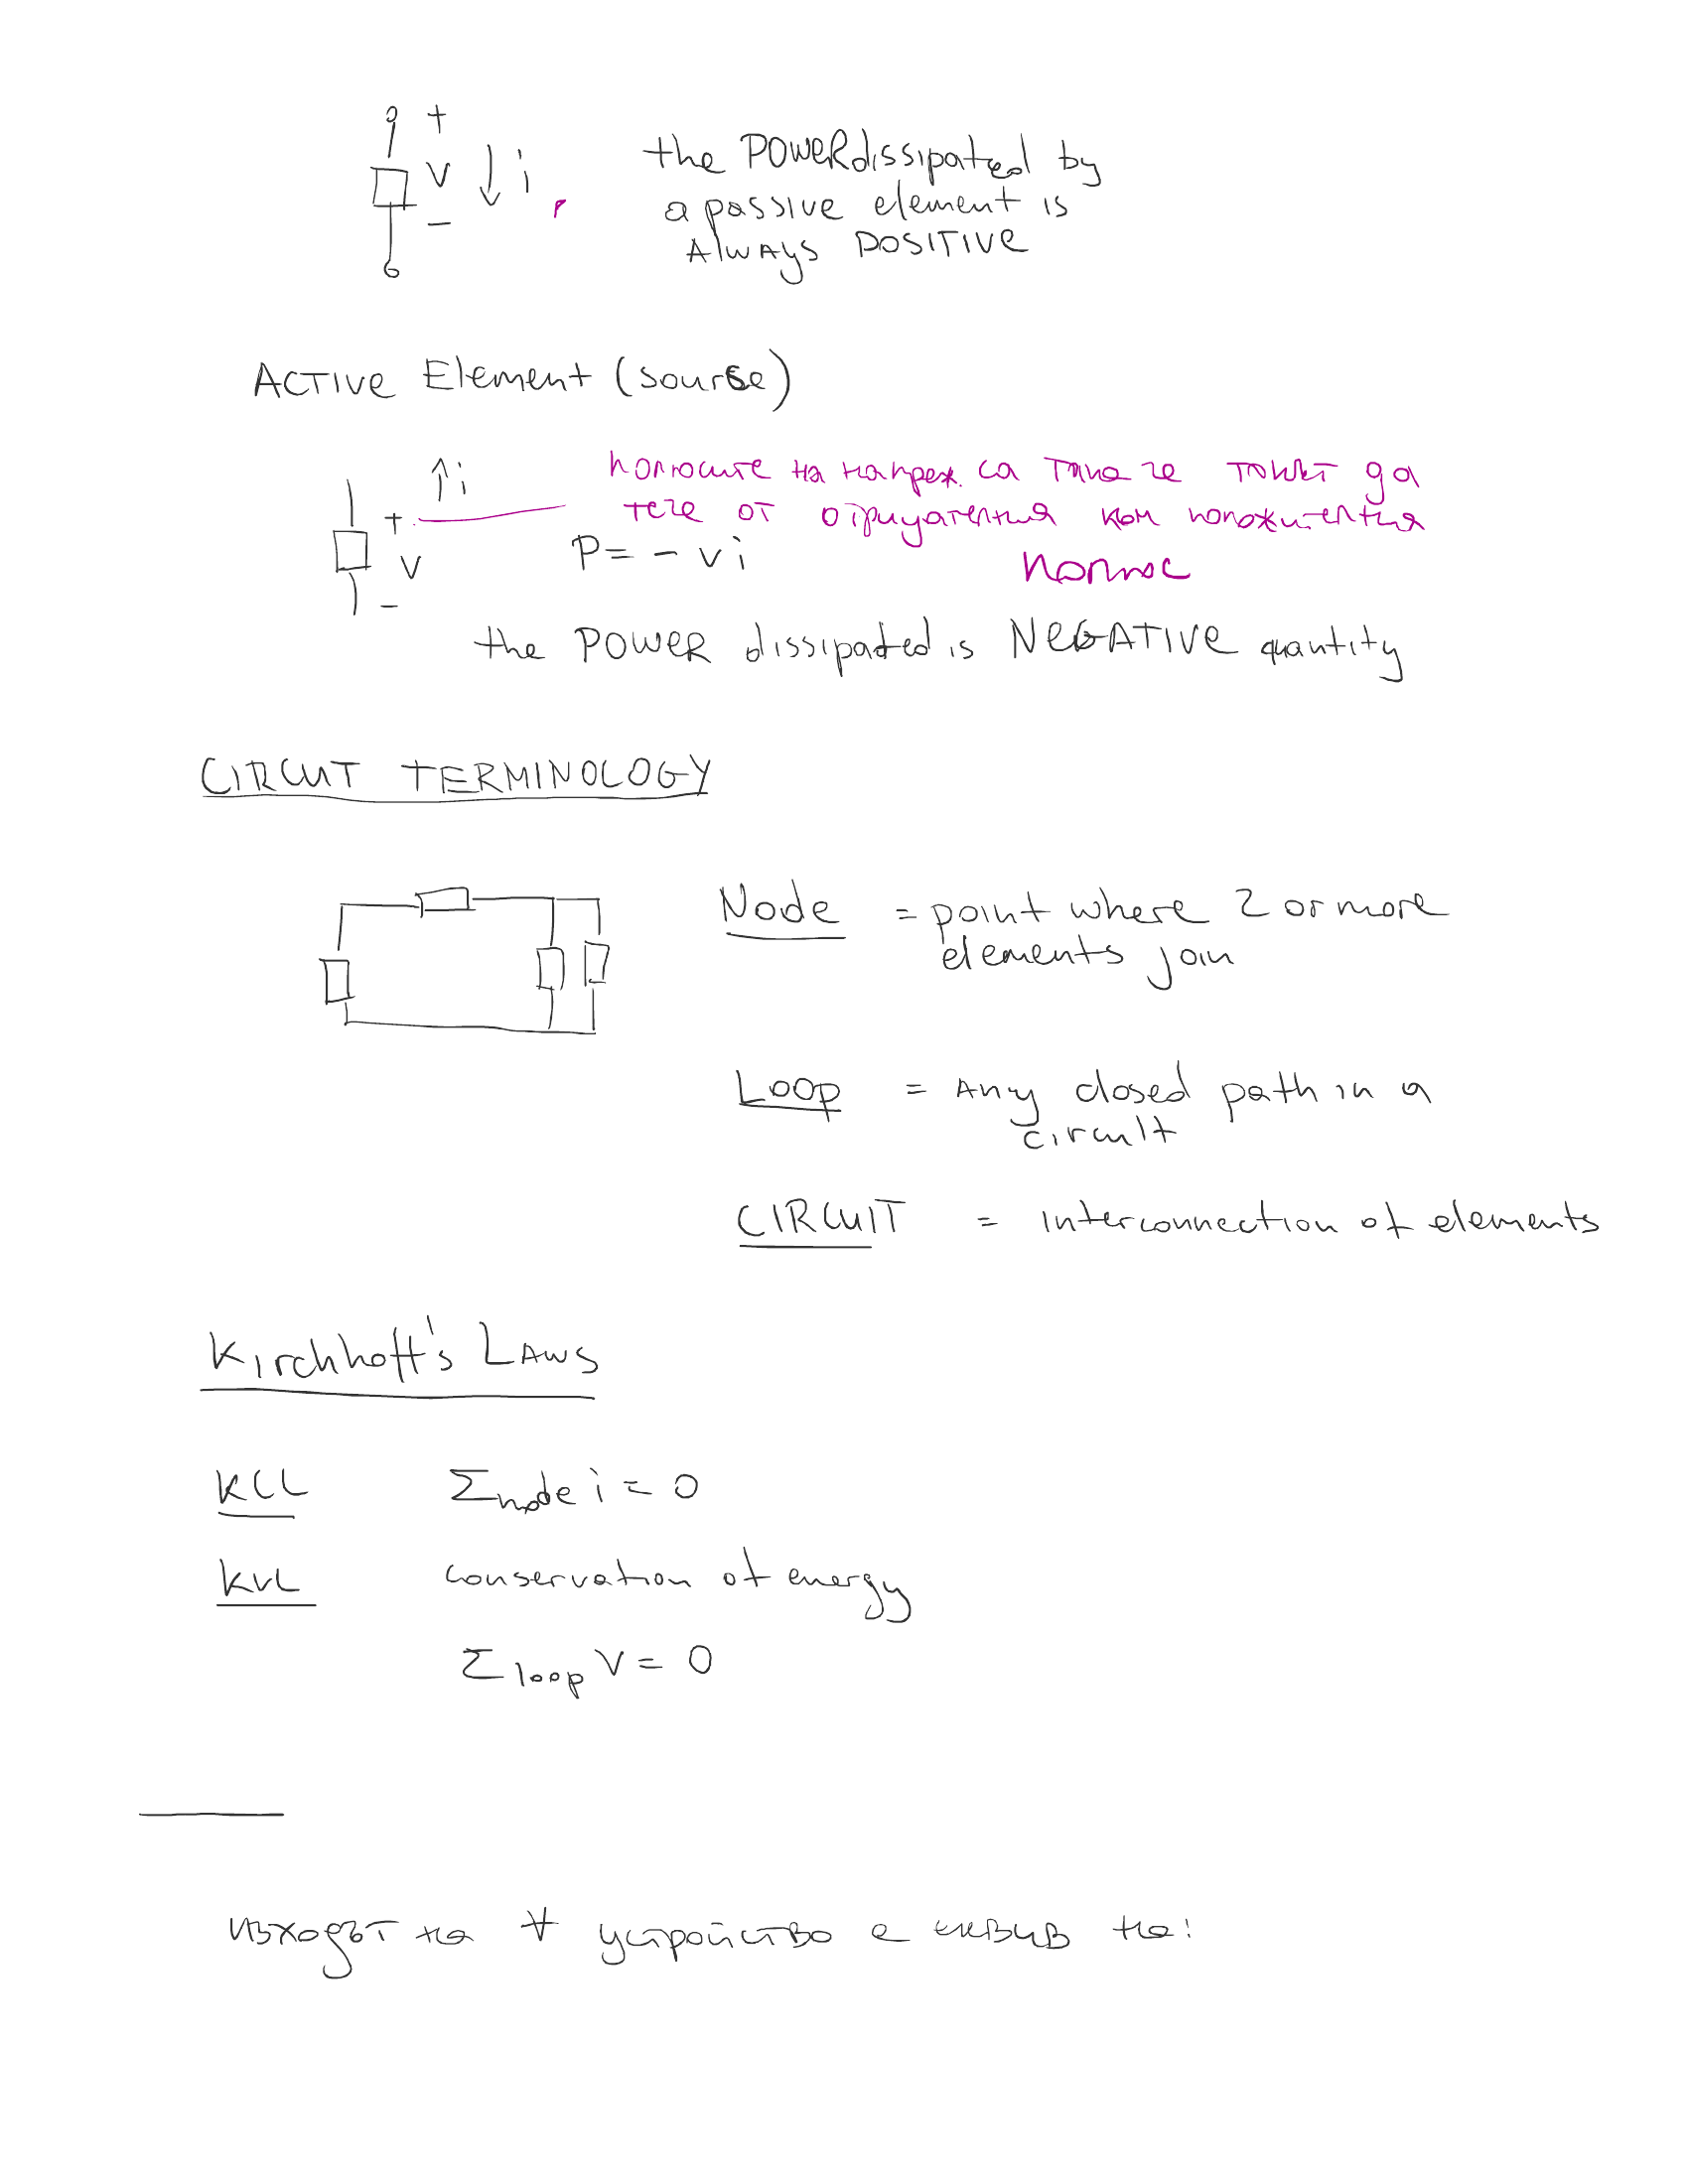 +
V i
-
the POWER dissipated by
a passive element is
Always POSITIVE
Active Element (source)
i
+
V
-
полюсите на напреж. са така че токът да
тече от отрицателния към положителния
полюс
P = - v i
the POWER dissipated is NEGATIVE quantity
CIRCUIT TERMINOLOGY
Node = point where 2 or more
elements join
Loop = Any closed path in a
circuit
CIRCUIT = interconnection of elements
Kirchhoff's Laws
KCL Σnode i = 0
KVL conservation of energy
Σloop V = 0
изходът на ∀ устройство е еквив на: